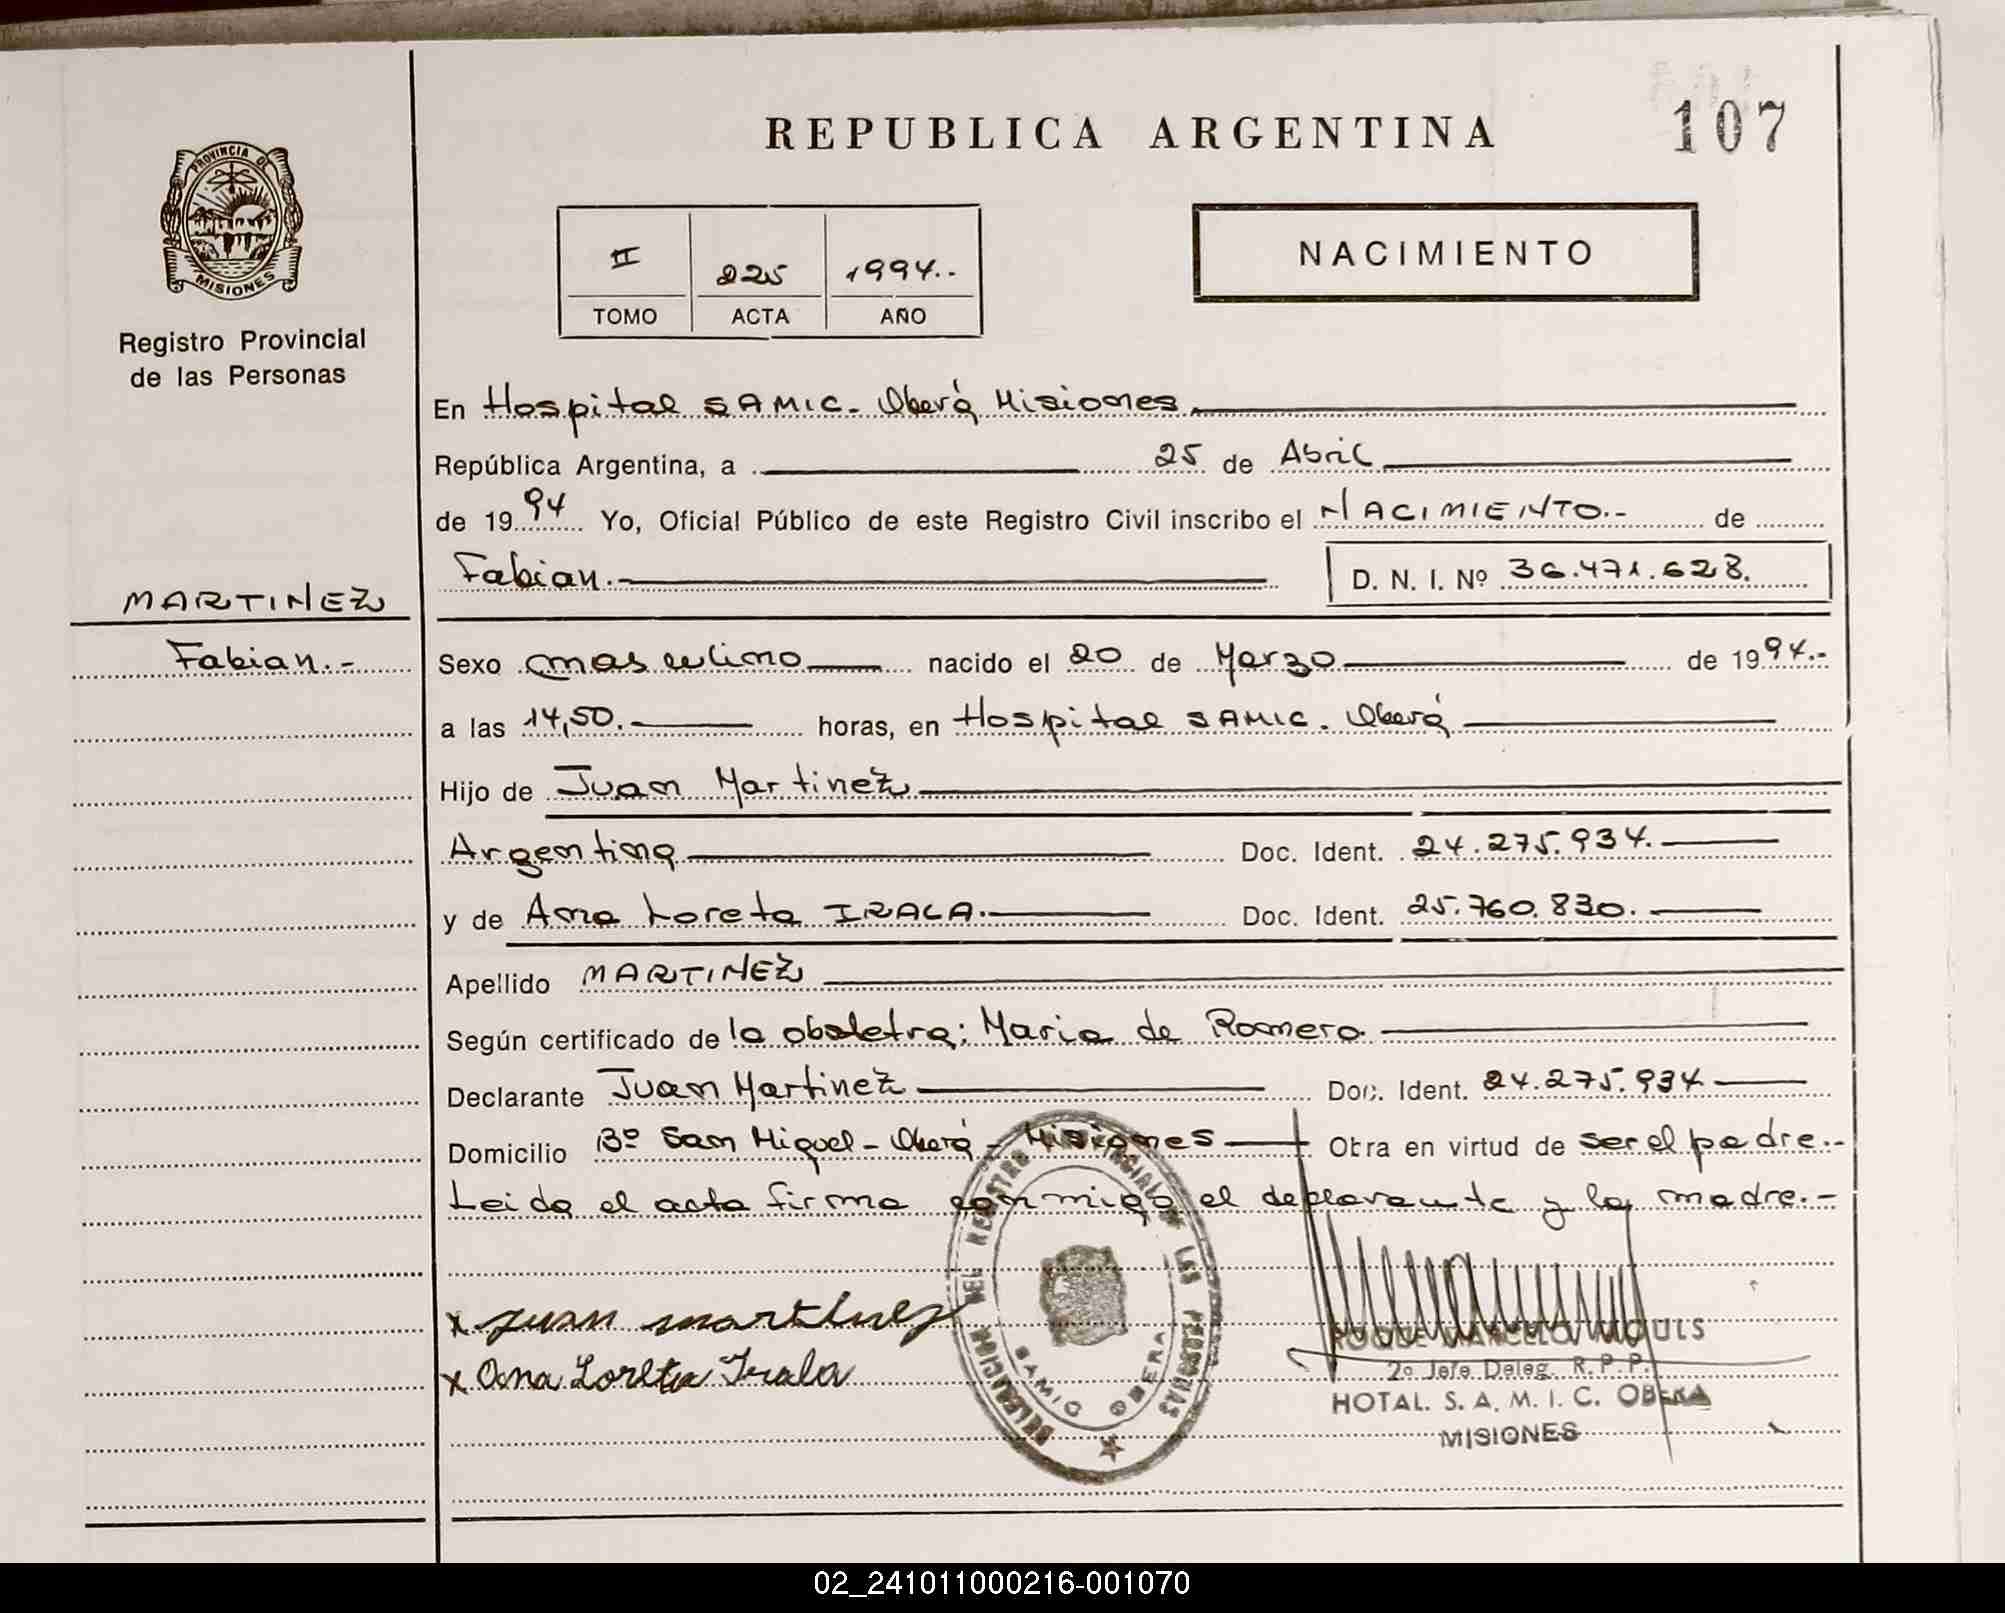 REPUBLICA ARGENTINA
107
PROVINCIA DE
MISIONES
Registro Provincial
de las Personas
NACIMIENTO
II 225 1994..
TOMO ACTA AÑO
En Hospital SAMIC. Oberá Misiones
República Argentina, a 25 de Abril
de 1994 Yo, Oficial Público de este Registro Civil inscribo el NACIMIENTO.- de
Fabian.- D. N. I. Nº 36.471.628.
MARTINEZ
Fabian.-
Sexo masculino nacido el 20 de Marzo de 1994.-
a las 14,50. horas, en Hospital SAMIC. Oberá
Hijo de Juan Martinez
Argentina Doc. Ident. 24.275.934.
y de Ana Loreta IRALA. Doc. Ident. 25.760.830.
Apellido MARTINEZ
Según certificado de la obstetra; Maria de Romero.
Declarante Juan Martinez Doc. Ident. 24.275.934
Domicilio Bº San Miguel - Oberá - Misiones Obra en virtud de ser el padre.-
Leida el acta firma conmigo el declarante y la madre.-
x Juan martinez
x Ana Loreta Irala
DELEGACION DEL REGISTRO PROVINCIAL DE LAS PERSONAS
SAMIC OBERA
ROQUE MARCELO
2º Jefe Deleg. R.P.P.
HOTAL. S. A. M. I. C. OBERA
MISIONES
02_241011000216-001070